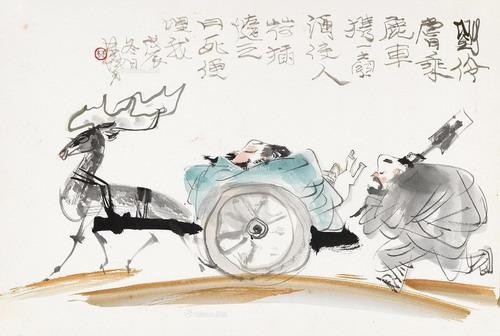 劉伶
嘗乘
鹿車
攜一壺
酒使人
荷鍤
隨之
曰死便
埋我